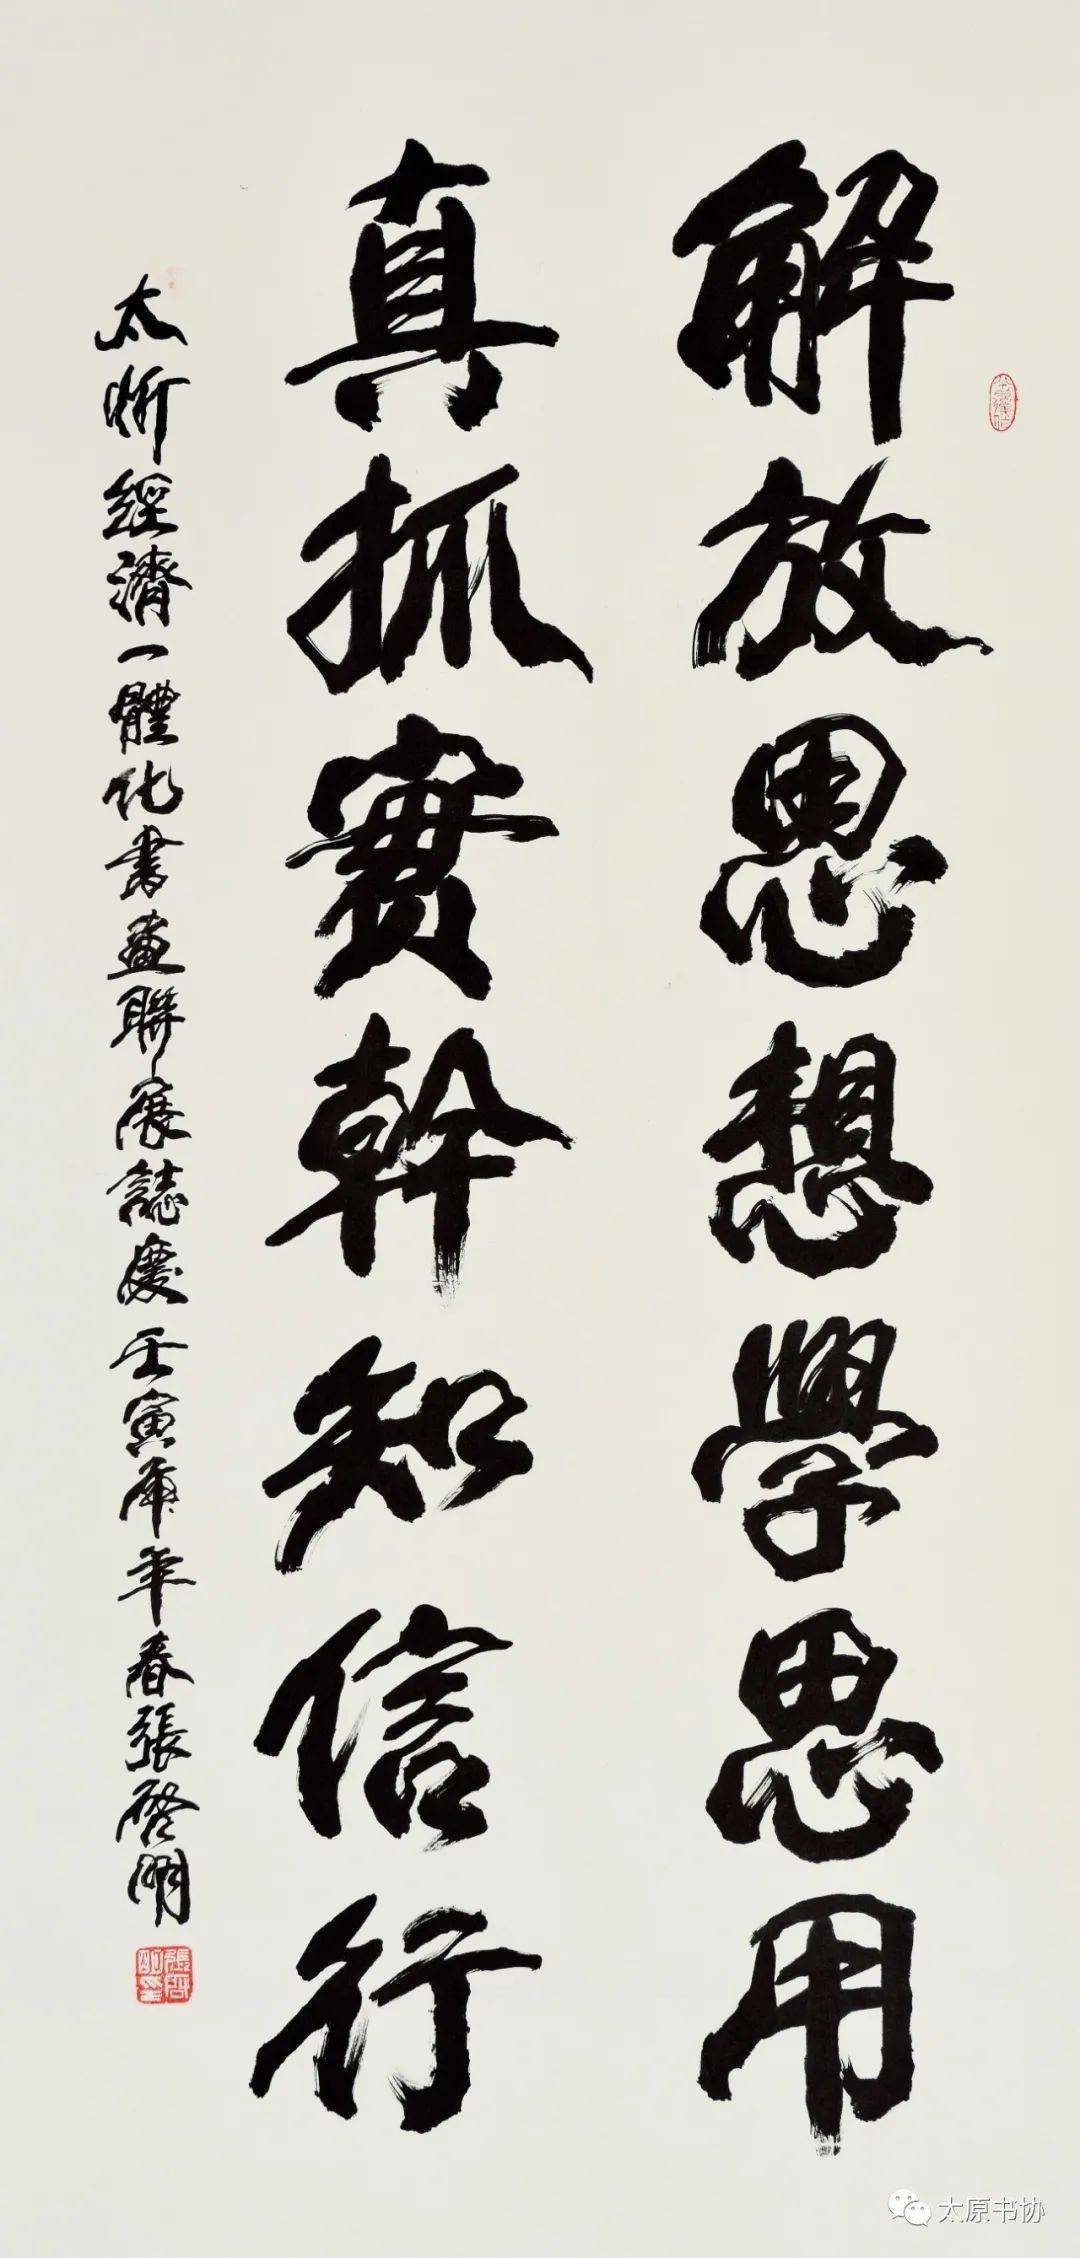 解放思想學思用
真抓實幹知信行
太忻經濟一體化書畫聯展誌慶壬寅虎年春張啓明
張啓明印
太原书协